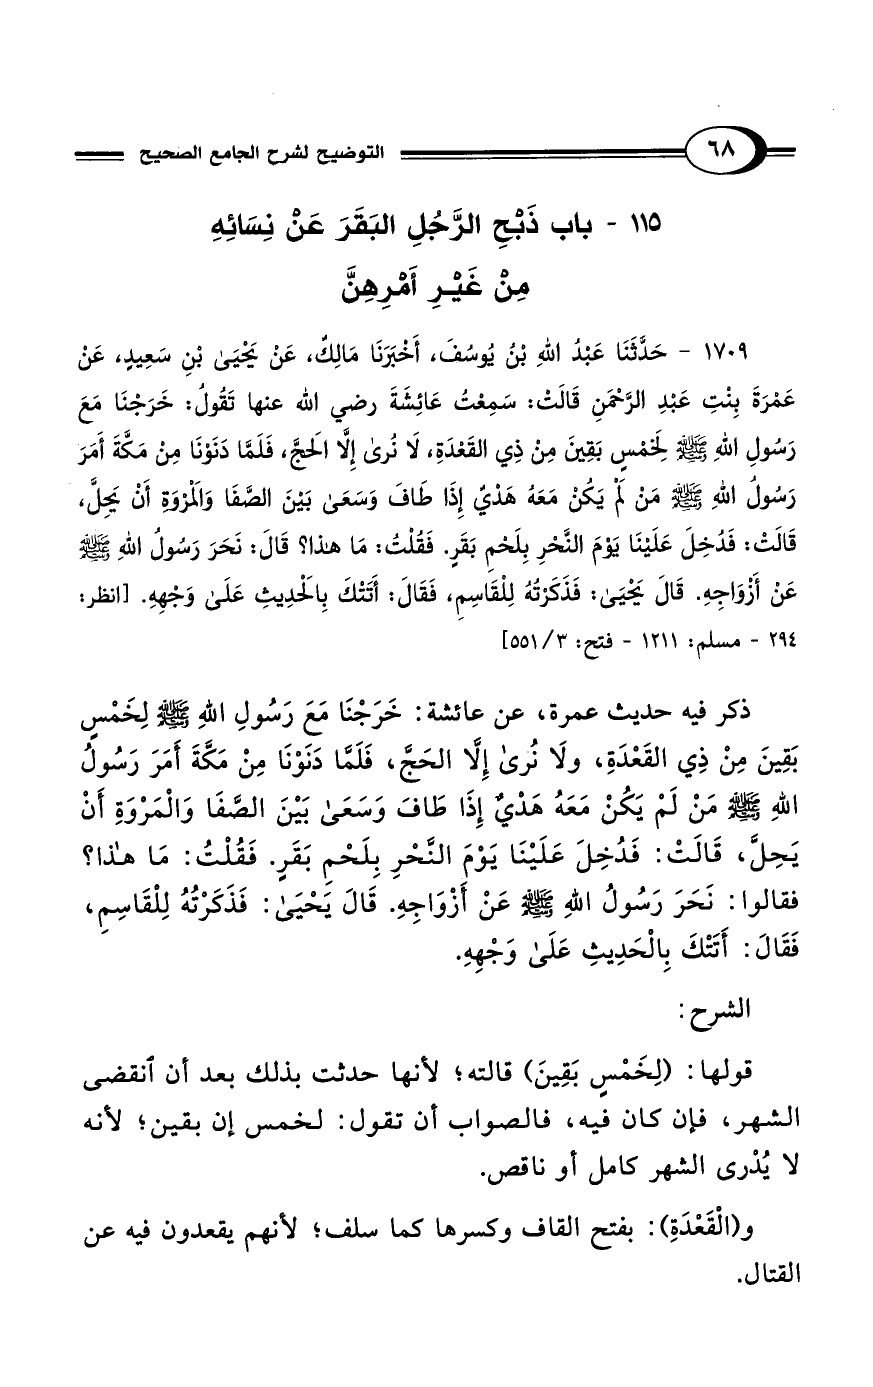 ٦٨ التوضيح لشرح الجامع الصحيح
١١٥ - باب ذَبْحِ الرَّجُلِ البَقَرَ عَنْ نِسَائِهِ
مِنْ غَيْرِ أَمْرِهِنَّ
١٧٠٩ - حَدَّثَنَا عَبْدُ اللهِ بْنُ يُوسُفَ، أَخْبَرَنَا مَالِكٌ، عَنْ يَحْيَىٰ بْنِ سَعِيدٍ، عَنْ
عَمْرَةَ بِنْتِ عَبْدِ الرَّحْمَنِ قَالَتْ: سَمِعْتُ عَائِشَةَ رضي الله عنها تَقُولُ: خَرَجْنَا مَعَ
رَسُولِ اللهِ ﷺ لِخَمْسٍ بَقِينَ مِنْ ذِي القَعْدَةِ، لَا نُرىٰ إِلَّا الَحجَّ، فَلَمَّا دَنَوْنَا مِنْ مَكَّةَ أَمَرَ
رَسُولُ اللهِ ﷺ مَنْ لَمْ يَكُنْ مَعَهُ هَدْيٌ إِذَا طَافَ وَسَعَىٰ بَيْنَ الصَّفَا وَالْمَرْوَةِ أَنْ يَحِلَّ،
قَالَتْ: فَدُخِلَ عَلَيْنَا يَوْمَ النَّحْرِ بِلَحْمِ بَقَرٍ. فَقُلْتُ: مَا هٰذا؟ قَالَ: نَحَرَ رَسُولُ اللهِ ﷺ
عَنْ أَزْوَاجِهِ. قَالَ يَحْيَىٰ: فَذَكَرْتُهُ لِلْقَاسِمِ، فَقَالَ: أَتَتْكَ بِالْحَدِيثِ عَلَىٰ وَجْهِهِ. [انظر:
٢٩٤ - مسلم: ١٢١١ - فتح: ٥٥١/٣]
ذكر فيه حديث عمرة، عن عائشة: خَرَجْنَا مَعَ رَسُولِ اللهِ ﷺ لِخَمْسٍ
بَقِينَ مِنْ ذِي القَعْدَةِ، ولَا نُرىٰ إِلَّا الحَجَّ، فَلَمَّا دَنَوْنَا مِنْ مَكَّةَ أَمَرَ رَسُولُ
اللهِ ﷺ مَنْ لَمْ يَكُنْ مَعَهُ هَدْيٌ إِذَا طَافَ وَسَعَىٰ بَيْنَ الصَّفَا وَالْمَرْوَةِ أَنْ
يَحِلَّ، قَالَتْ: فَدُخِلَ عَلَيْنَا يَوْمَ النَّحْرِ بِلَحْمِ بَقَرٍ. فَقُلْتُ: مَا هٰذا؟
فقالوا: نَحَرَ رَسُولُ اللهِ ﷺ عَنْ أَزْوَاجِهِ. قَالَ يَحْيَىٰ: فَذَكَرْتُهُ لِلْقَاسِمِ،
فَقَالَ: أَتَتْكَ بِالْحَدِيثِ عَلَىٰ وَجْهِهِ.
الشرح:
قولها: (لِخَمْسٍ بَقِينَ) قالته؛ لأنها حدثت بذلك بعد أن ٱنقضى
الشهر، فإن كان فيه، فالصواب أن تقول: لخمس إن بقين؛ لأنه
لا يُدْرى الشهر كامل أو ناقص.
و(الْقَعْدَةِ): بفتح القاف وكسرها كما سلف؛ لأنهم يقعدون فيه عن
القتال.